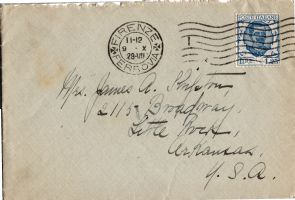 FIRENZE
11-12
9 · X
28-VII
FERROVIA
POSTE ITALIANE
LIRE 1,25
Mrs. James A.
2115 Broadway
Little Rock,
Arkansas,
U.S.A.